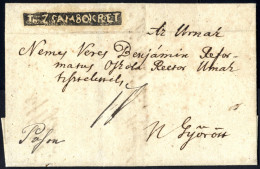 ZSAMBOKRET
Az Urnak
Nemes Veres Benjámin Refor-
matus Oskola Rector Urnak
tiszteletel
Győrött